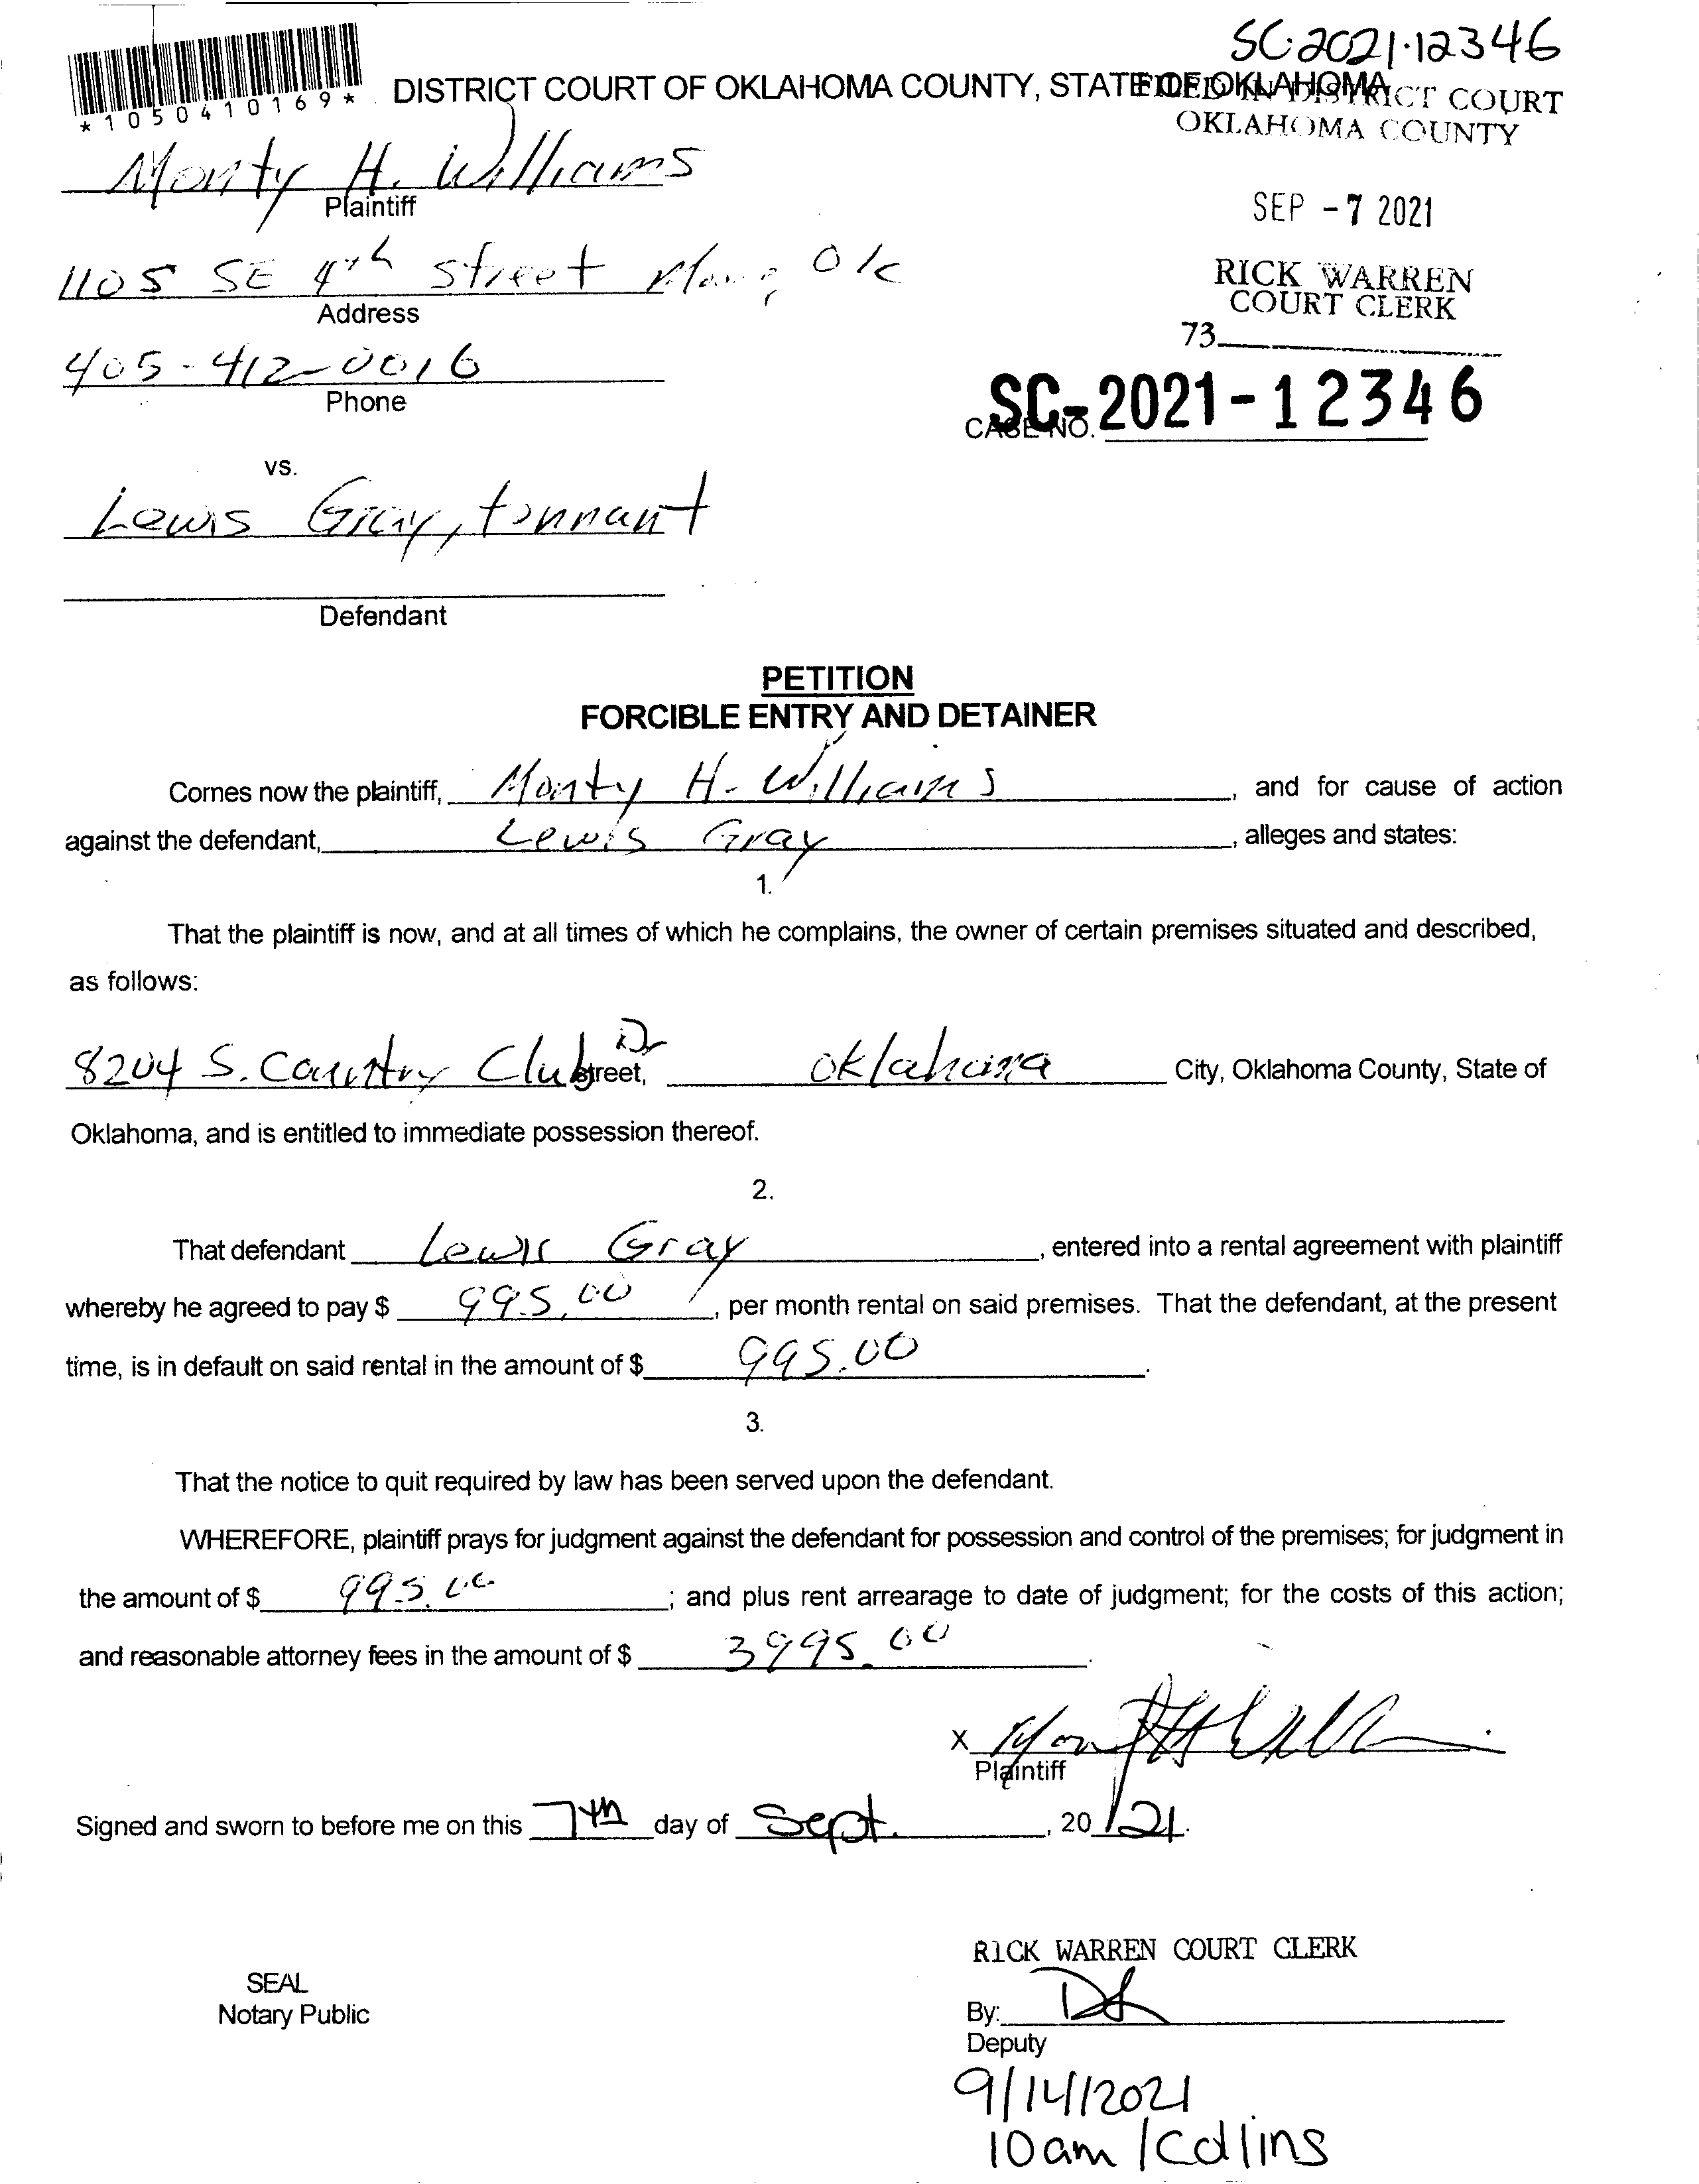 SC-2021-12346
*1050410169*
DISTRICT COURT OF OKLAHOMA COUNTY, STATE OF OKLAHOMA
FILED IN DISTRICT COURT
OKLAHOMA COUNTY
Monty H. Williams
Plaintiff
SEP -7 2021
1105 SE 4th Street Ok
Address
RICK WARREN
COURT CLERK
73
405-412-0016
Phone
CASE NO. SC-2021-12346
vs.
Lewis Gray, tennant
Defendant
PETITION
FORCIBLE ENTRY AND DETAINER
Comes now the plaintiff, Monty H. Williams, and for cause of action
against the defendant, Lewis Gray, alleges and states:
1.
That the plaintiff is now, and at all times of which he complains, the owner of certain premises situated and described,
as follows:
8204 S. Country Club Dr Street, Oklahoma City, Oklahoma County, State of
Oklahoma, and is entitled to immediate possession thereof.
2.
That defendant Lewis Gray, entered into a rental agreement with plaintiff
whereby he agreed to pay $ 995.00, per month rental on said premises. That the defendant, at the present
time, is in default on said rental in the amount of $ 995.00.
3.
That the notice to quit required by law has been served upon the defendant.
WHEREFORE, plaintiff prays for judgment against the defendant for possession and control of the premises; for judgment in
the amount of $ 995.00; and plus rent arrearage to date of judgment; for the costs of this action;
and reasonable attorney fees in the amount of $ 3995.00.
X
Plaintiff
Signed and sworn to before me on this 7th day of Sept., 20 21.
RICK WARREN COURT CLERK
SEAL
Notary Public
By:
Deputy
9/14/2021
10am/Collins